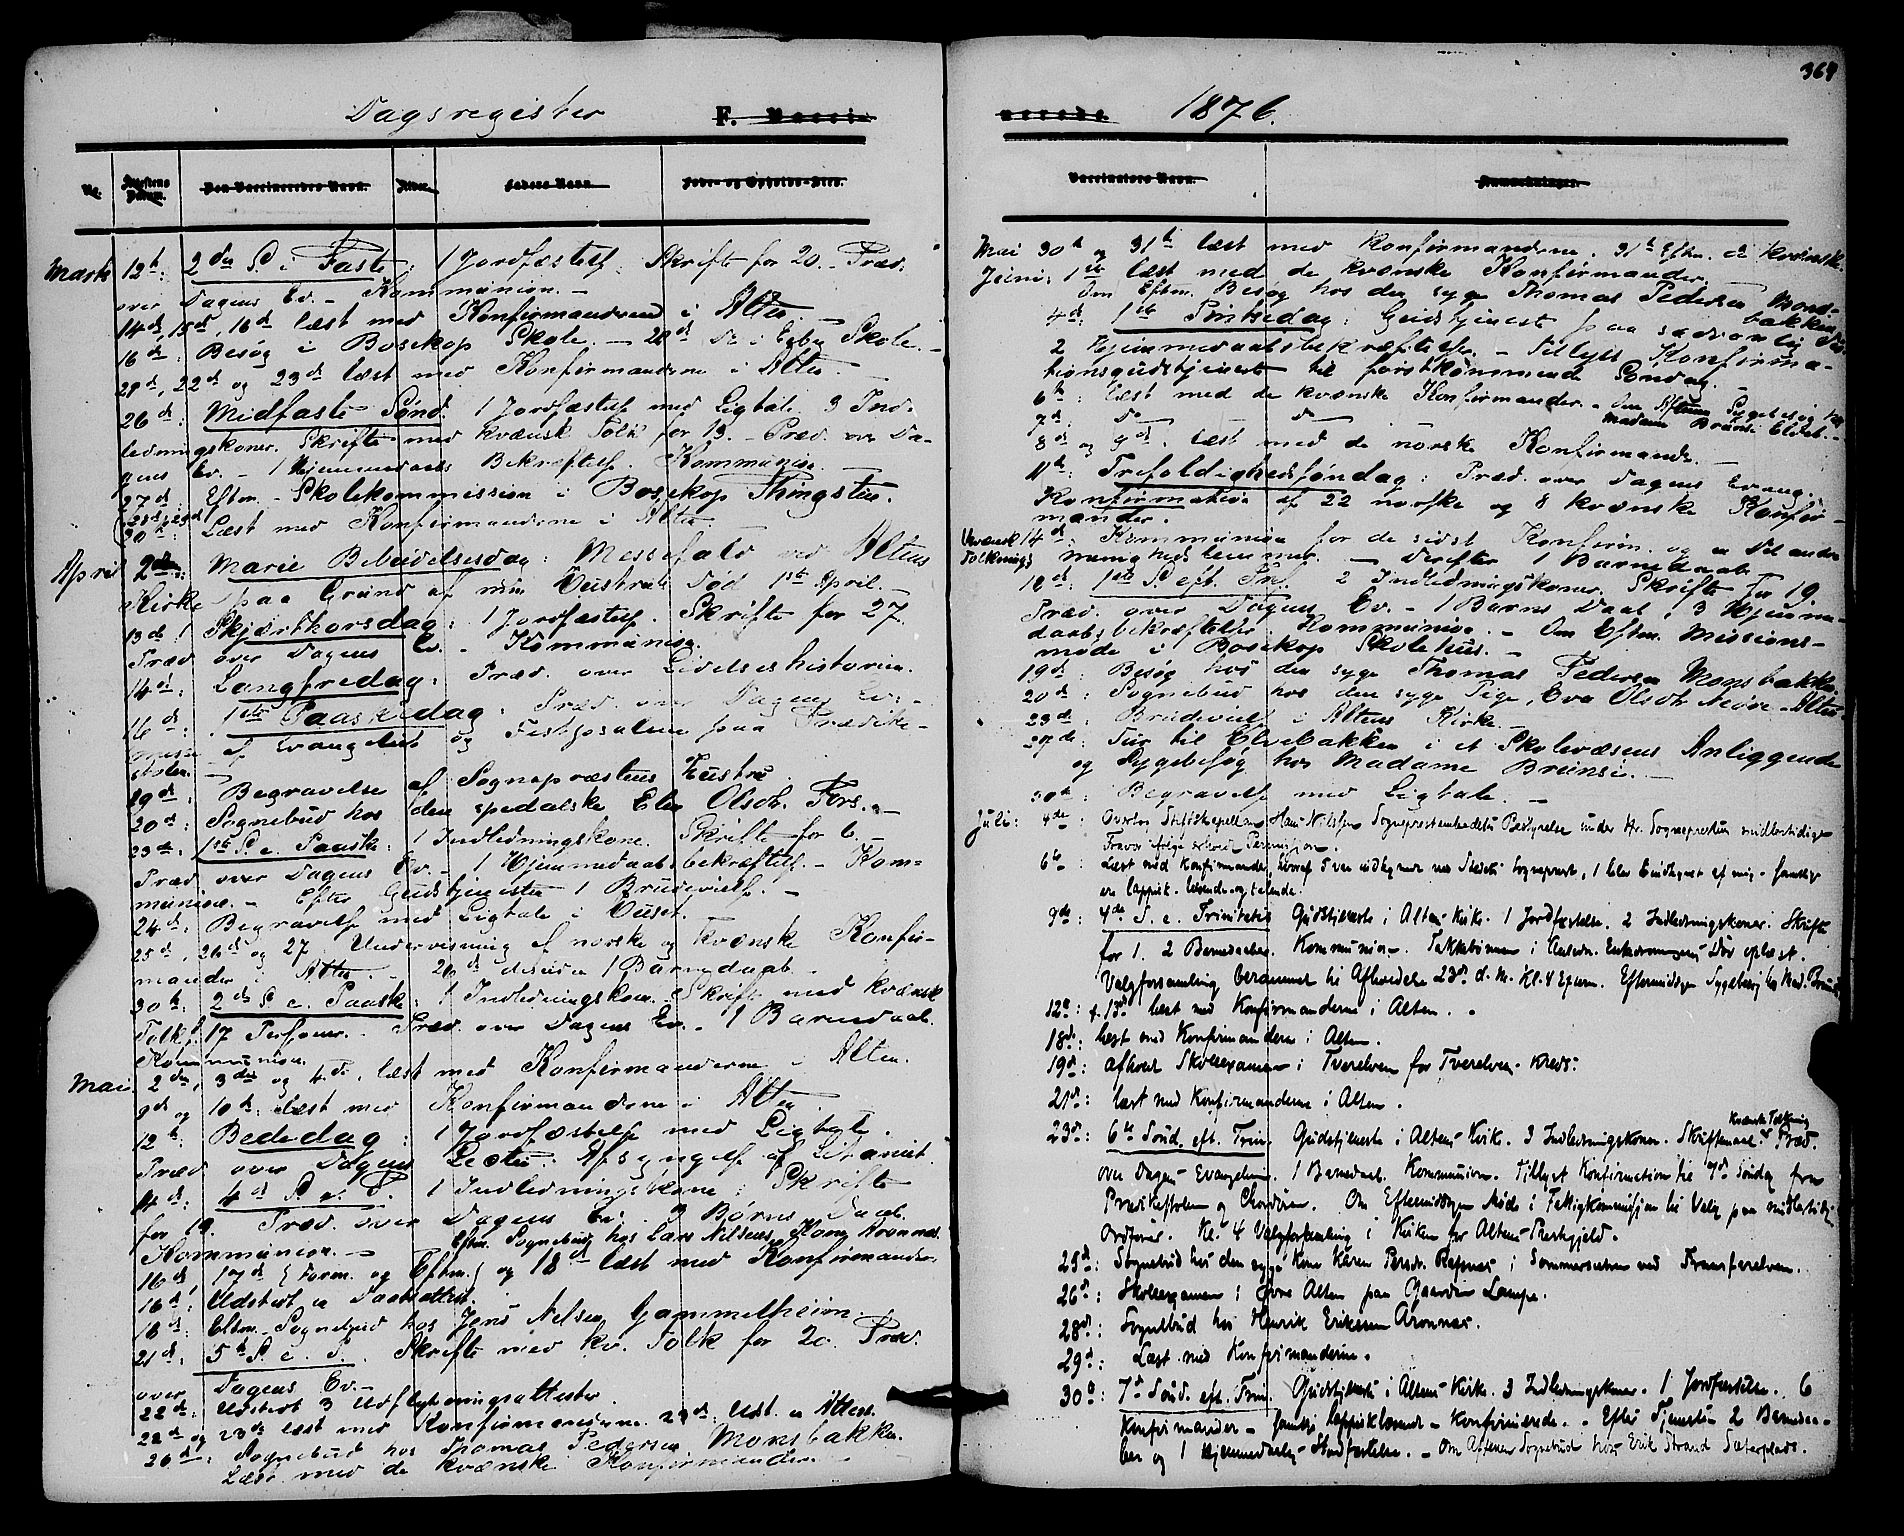 Dagsregister F. Vacci-
Marts 12te: 2den S. i Faste: 1 Jordfæstelse. Skrifte for 20. Præd.
over Dagens Ev. – Kommunion. –
14d, 15d, 16d læst med Konfirmanderne i Alten. –
16de: Besøg i Bosekop Skole. – 20d Do i Elvebk. Skole. –
21d, 22d og 23d læst med Konfirmanderne i Alten. –
26d: Midfaste-Sønd. 1 Jordfæstelse med Ligtale. 3 Ind-
ledningskoner. Skrifte med kvænsk Tolk for 13. – Præd. over Da-
gens Ev. – 1 Hjemmedaabs Bekræftelse. Kommunion. –
27d: Eftm. – Skolekommission i Bosekop Thingstue.
28d, 29d
30te: Læst med Konfirmanderne i Alten.
April 2den: Marie Bebudelsesdag: Messefald ved Altens
Kirke paa Grund af min Hustrus Død 1ste April. –
13d: Skjærthorsdag: 1 Jordfæstelse. Skrifte for 27.
Præd. over Dagens Ev. – Kommunion.
14d: Langfredag: Præd. over Lidelseshistorien.
16d: 1ste Paaskedag: Præd. over Dagens Ev. –
af Evangeliet og Festsalmen paa Prædike-
stolen. –
19d: Begravelse af Sognepræstens Hustru.
20d: Sognebud hos den spedalske Elen Olsdt. Fors. –
23d: 1ste S. e. Paaske: 1 Indledningskone. Skrifte for 6. –
Præd. over Dagens Ev. – 1 Hjemmedaabsbekræftelse. – Kom-
munion. – Efter Gudstjenesten 1 Brudevielse. –
24d: Begravelse med Ligtale i Huset. –
25d, 26d og 27. Undervisning af norske og kvænske Konfir-
mander i Alten. – 26d desuden 1 Barnedaab. –
30te: 2den S. e. Paaske: 1 Indledningskone. Skrifte med kvænsk
Tolk f. 17 Personer. – Præd. over Dagens Ev. – 1 Barnedaab.
Kommunion.
Mai 2den, 3die og 4de, læst med Konfirmanderne i Alten.
9d og 10de: læst med Konfirmanderne i Alten.
12te: Bededag: 1 Jordfæstelse med Ligtale.
Præd. over Dagens Lectie. Afsyngelse af Litaniet.
14d: 4d S. e. P. 1 Indledningskone: Skrifte
for 19. Præd. over Dagens Ev. 3 Børns Daab.
Kommunion. – Eftm. Sognebud hos Lars Nilsens Kone Aronnæs.
16d, 17d (Form. og Eftm.) og 18d læst med Konfirmander.
16d: Udstedt en Daabsattest.
18d: Eftm. – Sognebud hos Jens Nilsen Gammelheim.
21d: 5te S. e. P. Skrifte med kv. Tolk for 20. Præd.
over Dagens Ev. –
22d: Udstedt 3 Udflytningsattester.
22d og 23d læst med Konfirmanderne. 23d: Udst. en Attest.
26d: Sognebud hos Thomas Pedersen Monsbakke.
Læst med de kvænske Konfirmander. –
364
nerede 1876.
Mai 30te og 31te læst med Konfirmanderne. 31te Eftm. de kvænske.
Juni: 1ste læst med de kvænske Konfirmander.
Om Eftm. Besøg hos den syge Thomas Pedersen Mons-
bakken
4d: 1ste Pintsedag: Gudstjeneste paa sædvanlig
2 Hjemmedaabsbekræftelser. – Tillyst Konfirma-
tionsgudstjeneste til førstkommende Søndag.
6te: læst med de kvænske Konfirmander. – Om Aftenen Sygebesøg hos
Madame Brunsi Elveb. –
7d: do – do –
8d og 9d. læst med de norske Konfirmander. –
11te: Trefoldighedssøndag: Præd. over Dagens Evang.
Konfirmation af 22 norske og 8 kvænske Konfir-
mander.
Kvænsk 14d: Kommunion for de sidst Konfirm. og en Del andre
Tolkning menighedslemmer. – Derefter 1 Barnedaab. –
18d: 1ste S. eft. Tr. 2 Indledningskoner. Skrifte for 19.
Præd. over Dagens Ev. – 1 Barns Daab, 3 Hjemme-
daabsbekræftelser. Kommunion. – Om Eftm. Missions-
møde i Bosekop Skolehus. –
19d: Besøg hos den syge Thomas Pedersen Monsbakke.
20d: Sognebud hos den syge Pige, Eva Olsdt Alten.
23d: Brudevielse i Altens Kirke. –
27de: Tur til Elvebakken i et Skolevæsens Anliggende
og Sygebesøg hos Madame Brunsi. –
30te: Begravelse med Ligtale. –
Juli: 4de: Overtog Stiftskapellan Hans Nilssen Sogneprestembedets Bestyrelse under Hr. Sogneprestens midlertidige
Fravær ifølge erholdt Permission.
6te: Læst med Konfirmander,
ere lappisk-læsende og talende.
9de: 4de S. e. Trinitatis Gudstjeneste i Altens Kirke. 1 Jordfæstelse. 2 Indledningskoner. Skrifte
for 1. 2 Barnedaaber. Kommunion. Takkebønnen i Anledn.
Valgforsamling berammet til Afholdelse 23d d. M. Kl. 4 Efterm. Eftermiddagen Sygebesøg hos Mad. Brunsi.
12te: & 13d læst med Konfirmanderne i Alten.
18d: læst med Konfirmanderne i Alten.
19d: afholdt Skoleexamen i Tverelven for Tverelven-Kreds.
21d: læst med Konfirmanderne i Alten.
Kvænsk Tolkning
23d: 6te Sønd. eft. Trin. Gudstjeneste i Altens Kirke. 3 Indledningskoner. Skriftemaal. Præd.
over Dagens Evangelium. 1 Barnedaab. Kommunion. Tillyst Konfirmation til 7d Søndag fra
Prædikestolen og Chordøren. Om Eftermiddagen Møde i Fattigkommissjon til Valg paa midlertidig
Ordfører. Kl. 4 Valgforsamling i Kirken for Altens Prestegjeld.
25d: Sognebud hos den syge Kone Karen Persdr. Rafsnæs i Sommersæteren ved Transfarelven.
26d: Skoleexamen i Øvre Alten paa Gaarden Lampe.
28d: Sognebud hos Henrik Eriksen Aronnæs.
29d: Læst med Konfirmanderne.
30d: 7d Sønd. eft. Trin. Gudstjeneste i Altens Kirke. 3 Indledningskoner. 1 Jordfæstelse. 6
Konfirmander – samtl. lappisklæsende – konfirmerede. – Efter Tjenesten 2 Barnedaa-
ber og 1 Hjemmedaabs-Stadfæstelse. – Om Aftenen Sognebud hos Erik Strand Sæterplads.